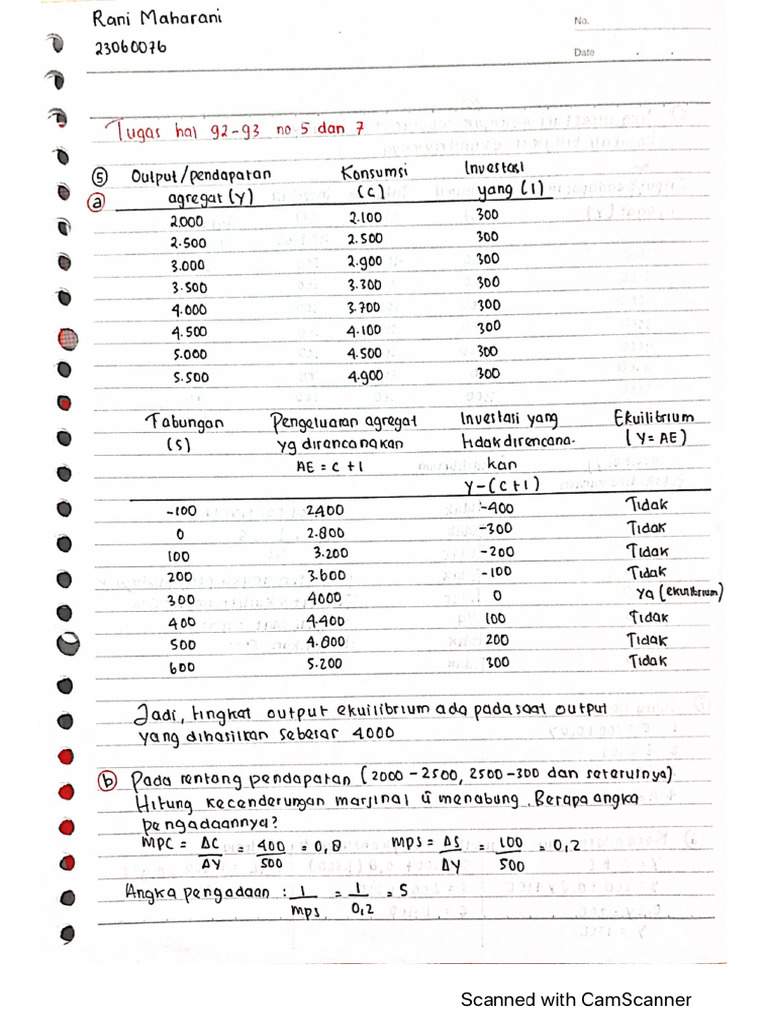 Rani Maharani
No.
23060076
Date . .
Tugas hal 92-93 no 5 dan 7
⑤ Output/pendapatan Konsumsi Investasi
ⓐ agregat (Y) (C) yang (I)
2.000 2.100 300
2.500 2.500 300
3.000 2.900 300
3.500 3.300 300
4.000 3.700 300
4.500 4.100 300
5.000 4.500 300
5.500 4.900 300
Tabungan Pengeluaran agregat Investasi yang Ekuilibrium
(S) yg dirancanakan tidak direncana- (Y = AE)
AE = C + I kan
Y-(C+I)
-100 2.400 -400 Tidak
0 2.800 -300 Tidak
100 3.200 -200 Tidak
200 3.600 -100 Tidak
300 4000 0 Ya (ekuilibrium)
400 4.400 100 Tidak
500 4.800 200 Tidak
600 5.200 300 Tidak
Jadi, tingkat output ekuilibrium ada pada saat output
yang dihasilkan sebesar 4000
ⓑ Pada rentang pendapatan (2000 - 2500, 2500 - 300 dan seterusnya)
Hitung kecenderungan marjinal ū menabung. Berapa angka
pengadaannya?
MPC = ΔC = 400 = 0,8 MPS = ΔS = 100 = 0,2
ΔY 500 ΔY 500
Angka pengadaan : 1 = 1 = 5
mps 0,2
Scanned with CamScanner